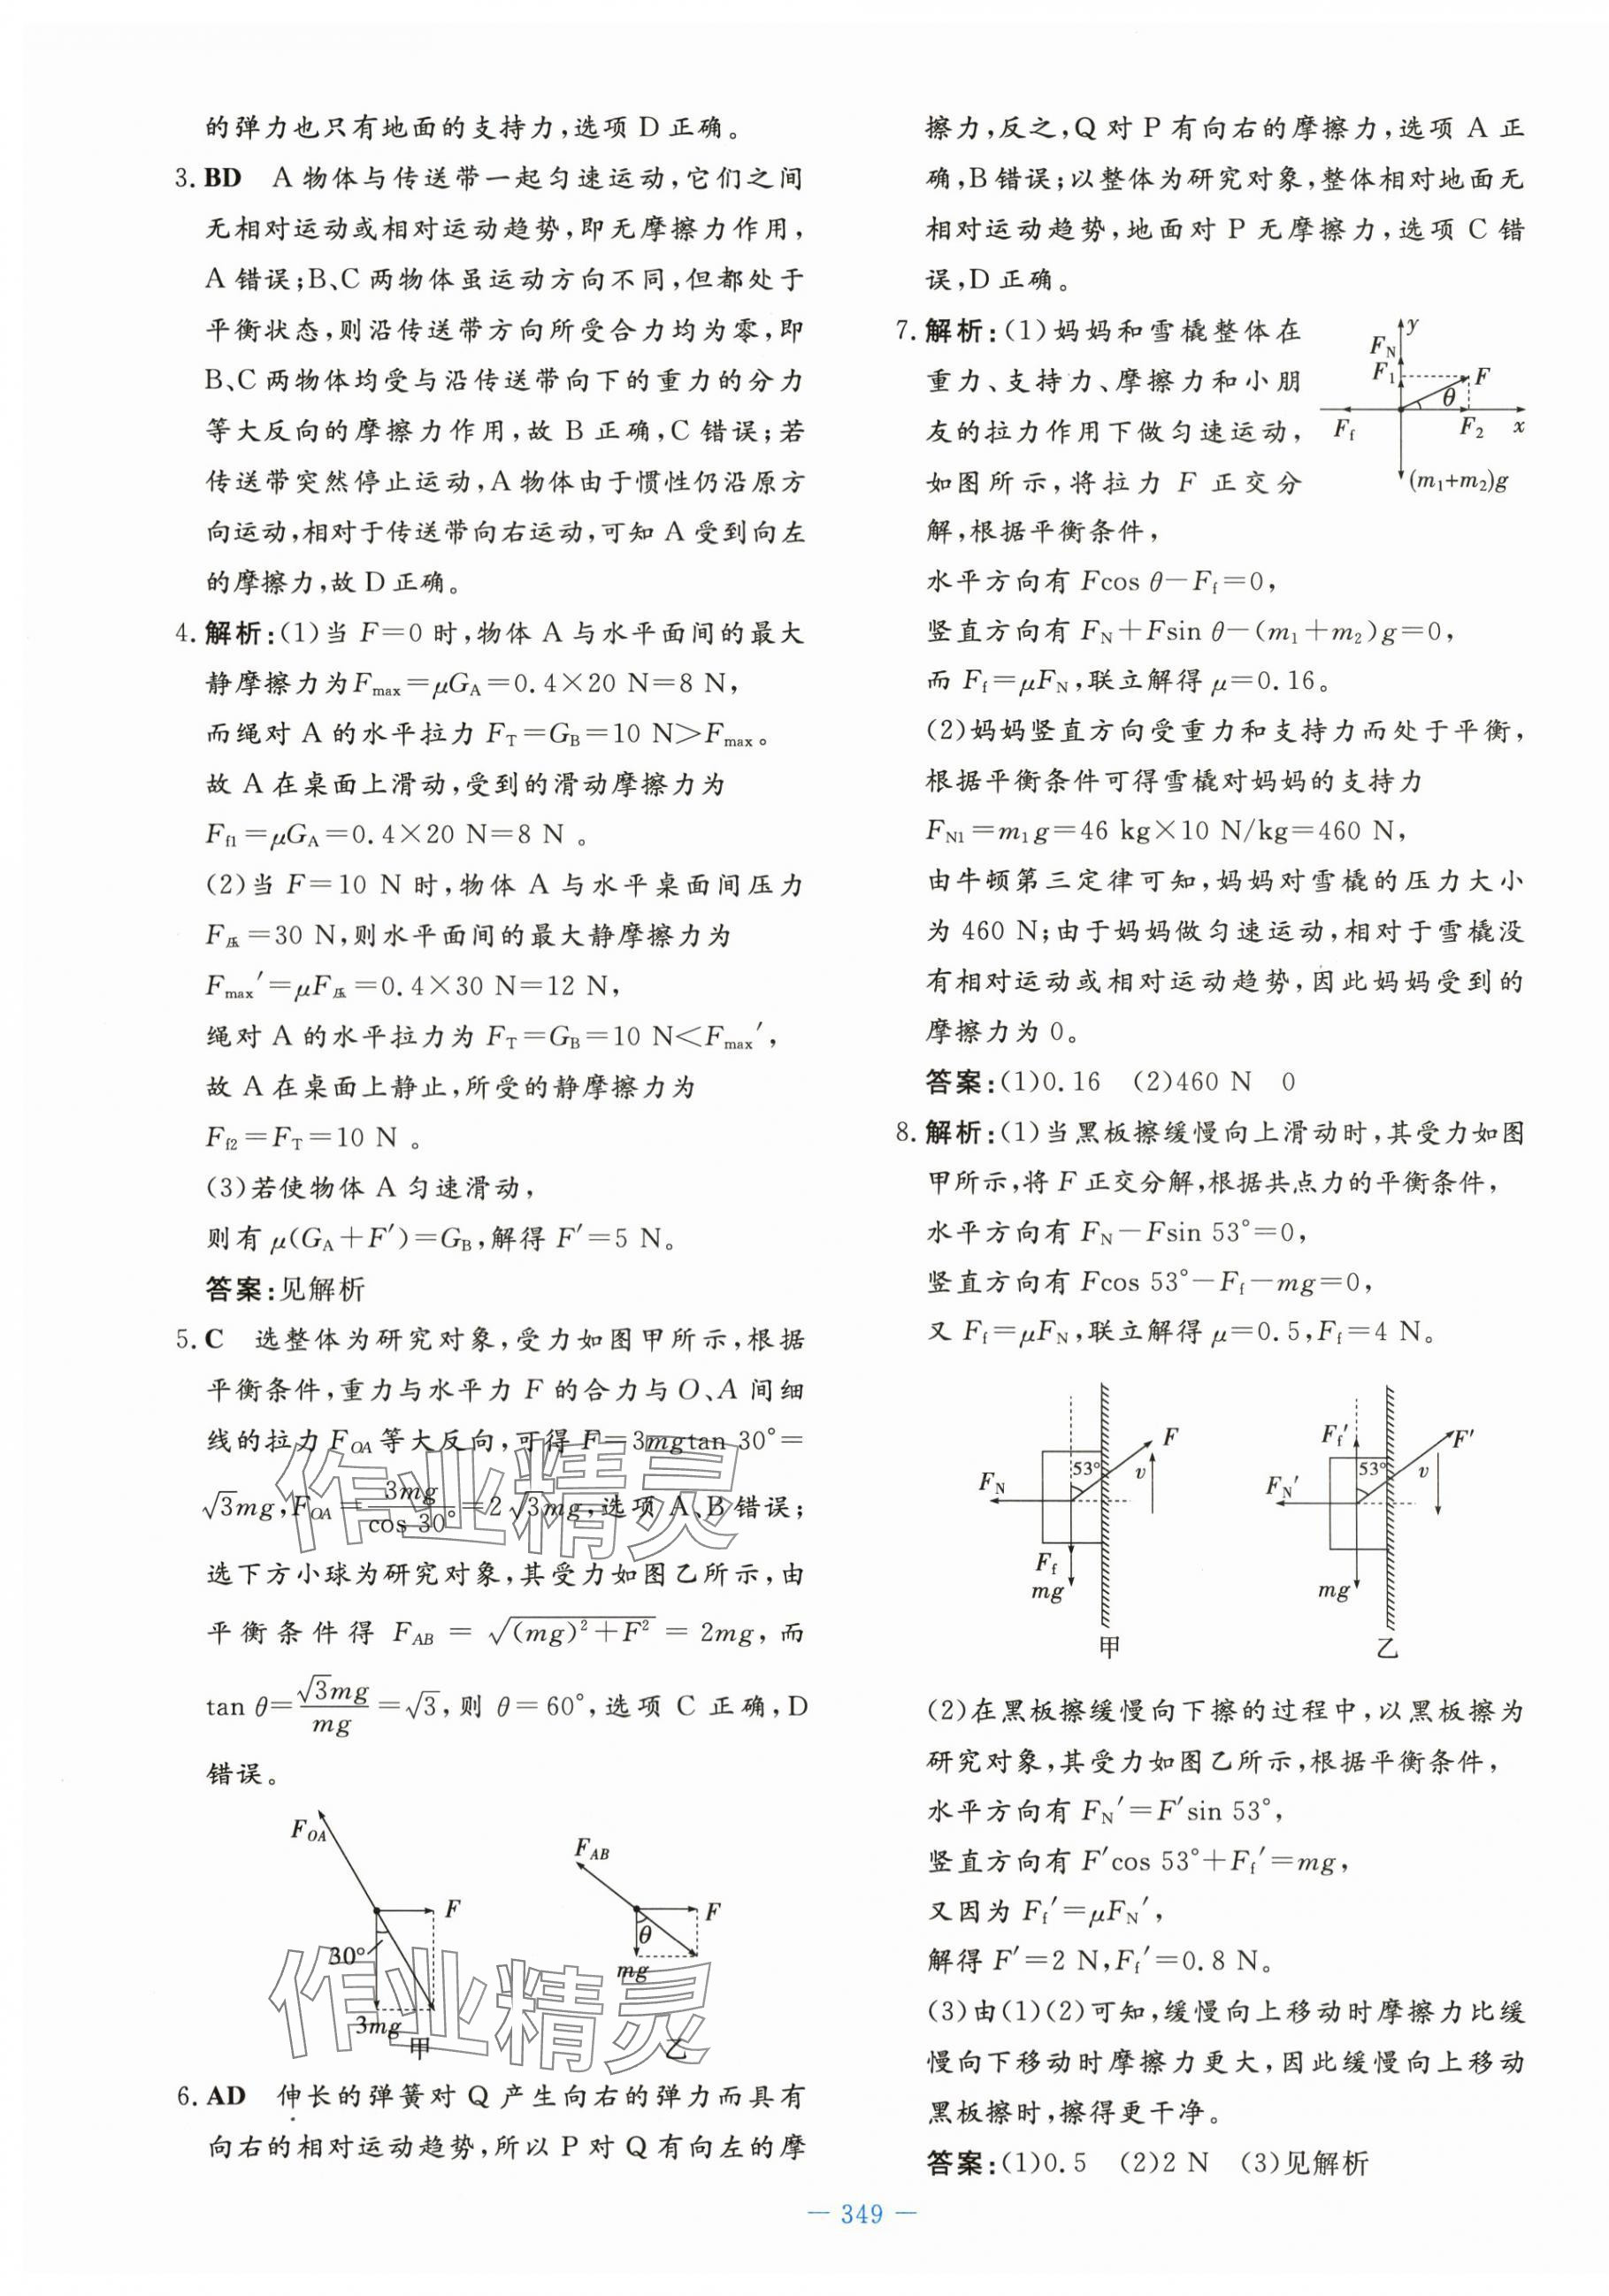 的弹力也只有地面的支持力,选项 D 正确。
3. BD A 物体与传送带一起匀速运动,它们之间
无相对运动或相对运动趋势,即无摩擦力作用,
A 错误;B、C 两物体虽运动方向不同,但都处于
平衡状态,则沿传送带方向所受合力均为零,即
B、C 两物体均受与沿传送带向下的重力的分力
等大反向的摩擦力作用,故 B 正确,C 错误;若
传送带突然停止运动,A 物体由于惯性仍沿原方
向运动,相对于传送带向右运动,可知 A 受到向左
的摩擦力,故 D 正确。
4. 解析:(1)当 F=0 时,物体 A 与水平面间的最大
静摩擦力为Fmax=μGA=0.4×20 N=8 N,
而绳对 A 的水平拉力 FT=GB=10 N>Fmax。
故 A 在桌面上滑动,受到的滑动摩擦力为
Ff1=μGA=0.4×20 N=8 N 。
(2)当 F=10 N 时,物体 A 与水平桌面间压力
F压=30 N,则水平面间的最大静摩擦力为
Fmax′=μF压=0.4×30 N=12 N,
绳对 A 的水平拉力为 FT=GB=10 N<Fmax′,
故 A 在桌面上静止,所受的静摩擦力为
Ff2=FT=10 N 。
(3)若使物体 A 匀速滑动,
则有 μ(GA+F′)=GB,解得 F′=5 N。
答案:见解析
5. C 选整体为研究对象,受力如图甲所示,根据
平衡条件,重力与水平力 F 的合力与O、A 间细
线的拉力 FOA等大反向,可得 F=3mgtan 30°=
√3mg,FOA=3mg/cos 30°=2√3mg,选项 A、B 错误;
选下方小球为研究对象,其受力如图乙所示,由
平衡条件得 FAB = √((mg)²+F²) = 2mg,而
tan θ=√3mg/mg=√3,则 θ=60°,选项 C 正确,D
错误。
FOA
F
30°
3mg
甲
FAB
F
θ
mg
乙
作业精灵
作业精灵
6. AD 伸长的弹簧对 Q 产生向右的弹力而具有
向右的相对运动趋势,所以 P 对 Q 有向左的摩
擦力,反之,Q 对 P 有向右的摩擦力,选项 A 正
确,B 错误;以整体为研究对象,整体相对地面无
相对运动趋势,地面对 P 无摩擦力,选项 C 错
误,D 正确。
7. 解析:(1)妈妈和雪橇整体在
重力、支持力、摩擦力和小朋
友的拉力作用下做匀速运动,
如图所示,将拉力 F 正交分
解,根据平衡条件,
y
FN
F1
F
θ
Ff
F2
x
(m1+m2)g
水平方向有 Fcos θ-Ff=0,
竖直方向有 FN+Fsin θ-(m1+m2)g=0,
而 Ff=μFN,联立解得 μ=0.16。
(2)妈妈竖直方向受重力和支持力而处于平衡,
根据平衡条件可得雪橇对妈妈的支持力
FN1=m1g=46 kg×10 N/kg=460 N,
由牛顿第三定律可知,妈妈对雪橇的压力大小
为 460 N;由于妈妈做匀速运动,相对于雪橇没
有相对运动或相对运动趋势,因此妈妈受到的
摩擦力为 0。
答案:(1)0.16 (2)460 N 0
8. 解析:(1)当黑板擦缓慢向上滑动时,其受力如图
甲所示,将 F 正交分解,根据共点力的平衡条件,
水平方向有 FN-Fsin 53°=0,
竖直方向有 Fcos 53°-Ff-mg=0,
又 Ff=μFN,联立解得 μ=0.5,Ff=4 N。
F
53°
v
FN
Ff
mg
甲
Ff′
F′
53°
v
FN′
mg
乙
(2)在黑板擦缓慢向下擦的过程中,以黑板擦为
研究对象,其受力如图乙所示,根据平衡条件,
水平方向有 FN′=F′sin 53°,
竖直方向有 F′cos 53°+Ff′=mg,
又因为 Ff′=μFN′,
解得 F′=2 N,Ff′=0.8 N。
(3)由(1)(2)可知,缓慢向上移动时摩擦力比缓
慢向下移动时摩擦力更大,因此缓慢向上移动
黑板擦时,擦得更干净。
答案:(1)0.5 (2)2 N (3)见解析
— 349 —